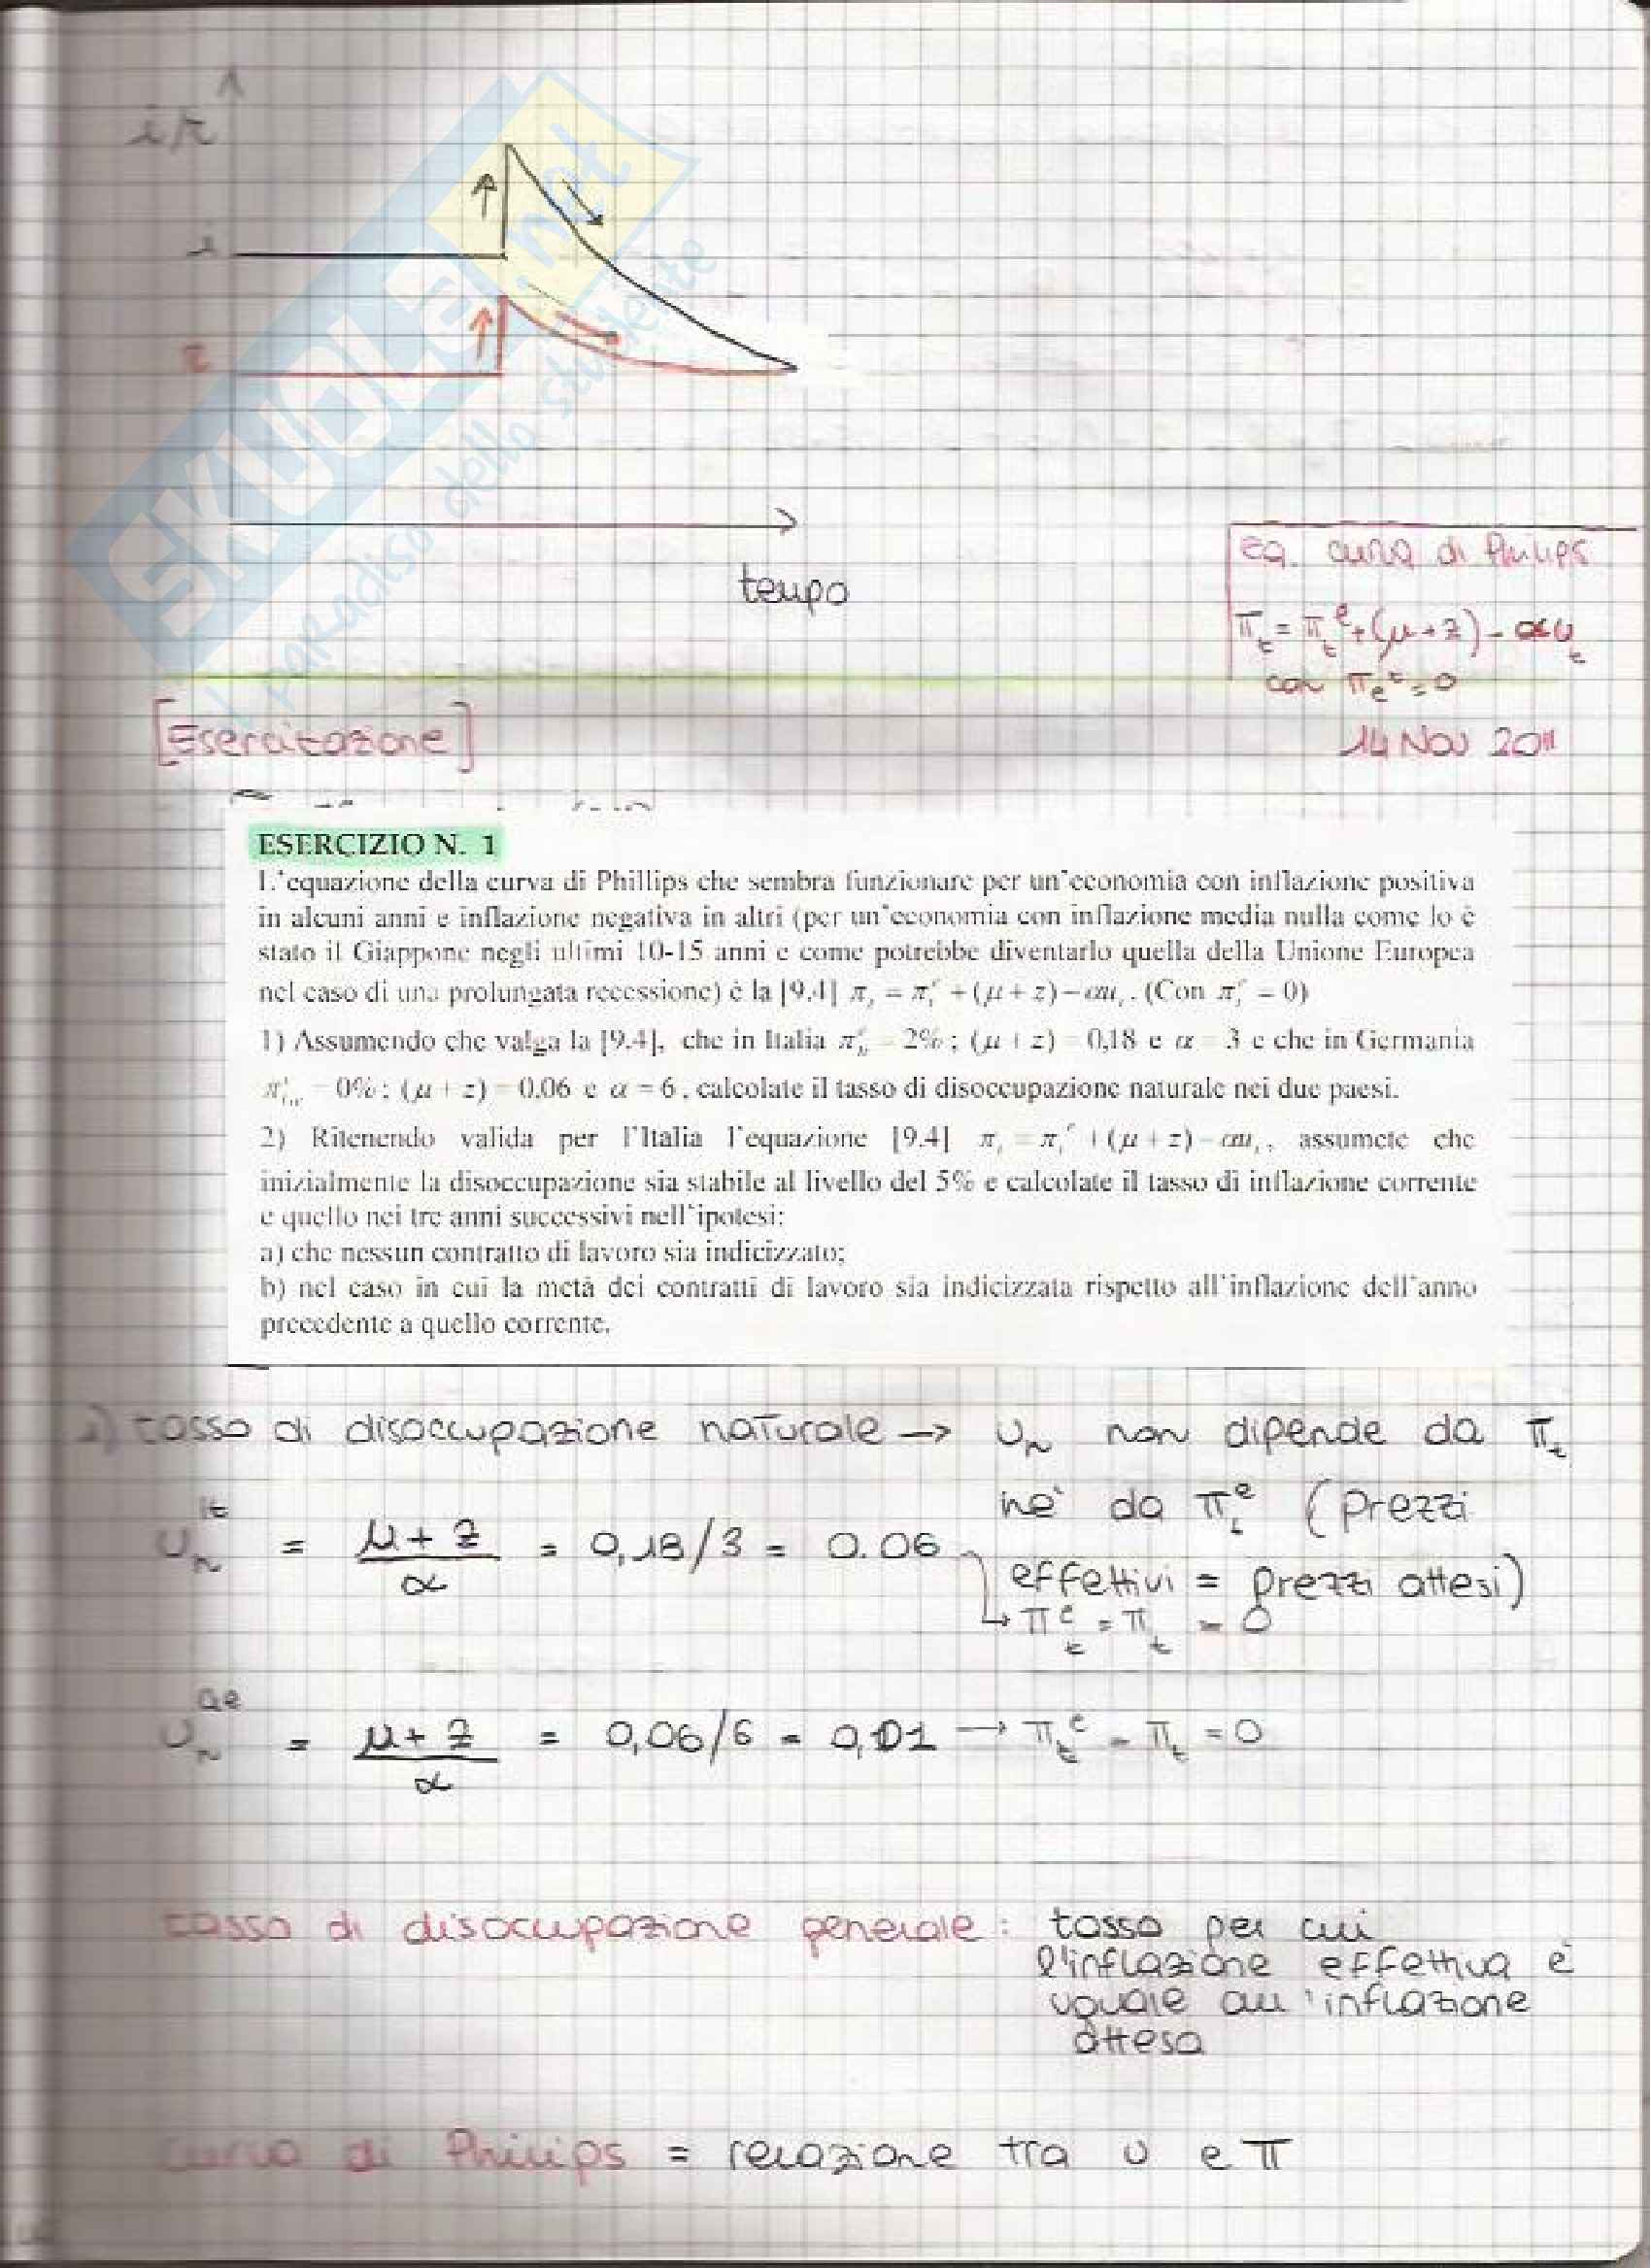 i/r
SKUOLA.net
il paradiso dello studente
i
r
tempo
eq. curva di Philips
π_t = π_t^e + (μ+z) - αu_t
con π_e^t = 0
[Esercitazione]
14 Nov 2011
ESERCIZIO N. 1
L'equazione della curva di Phillips che sembra funzionare per un'economia con inflazione positiva
in alcuni anni e inflazione negativa in altri (per un'economia con inflazione media nulla come lo è
stato il Giappone negli ultimi 10-15 anni e come potrebbe diventarlo quella della Unione Europea
nel caso di una prolungata recessione) è la [9.4] π_t = π_t^e + (μ + z) – αu_t. (Con π_t^e = 0)
1) Assumendo che valga la [9.4], che in Italia π_it^e = 2%; (μ + z) = 0,18 e α = 3 e che in Germania
= 0%; (μ + z) = 0.06 e α = 6, calcolate il tasso di disoccupazione naturale nei due paesi.
2) Ritenendo valida per l'Italia l'equazione [9.4] π_t = π_t^e + (μ + z) – αu_t, assumete che
inizialmente la disoccupazione sia stabile al livello del 5% e calcolate il tasso di inflazione corrente
e quello nei tre anni successivi nell'ipotesi:
a) che nessun contratto di lavoro sia indicizzato;
b) nel caso in cui la metà dei contratti di lavoro sia indicizzata rispetto all'inflazione dell'anno
precedente a quello corrente.
1) tasso di disoccupazione naturale → u_n non dipende da π_t
nè da π_t^e (prezzi
u_n^it = (μ + z)/α = 0,18/3 = 0.06
effettivi = prezzi attesi)
↳ π_t^e = π_t = 0
u_n^ge = (μ + z)/α = 0,06/6 = 0,01 → π_t^e = π_t = 0
tasso di disoccupazione generale: tasso per cui
l'inflazione effettiva è
uguale all'inflazione
attesa
curva di Philips = relazione tra u e π